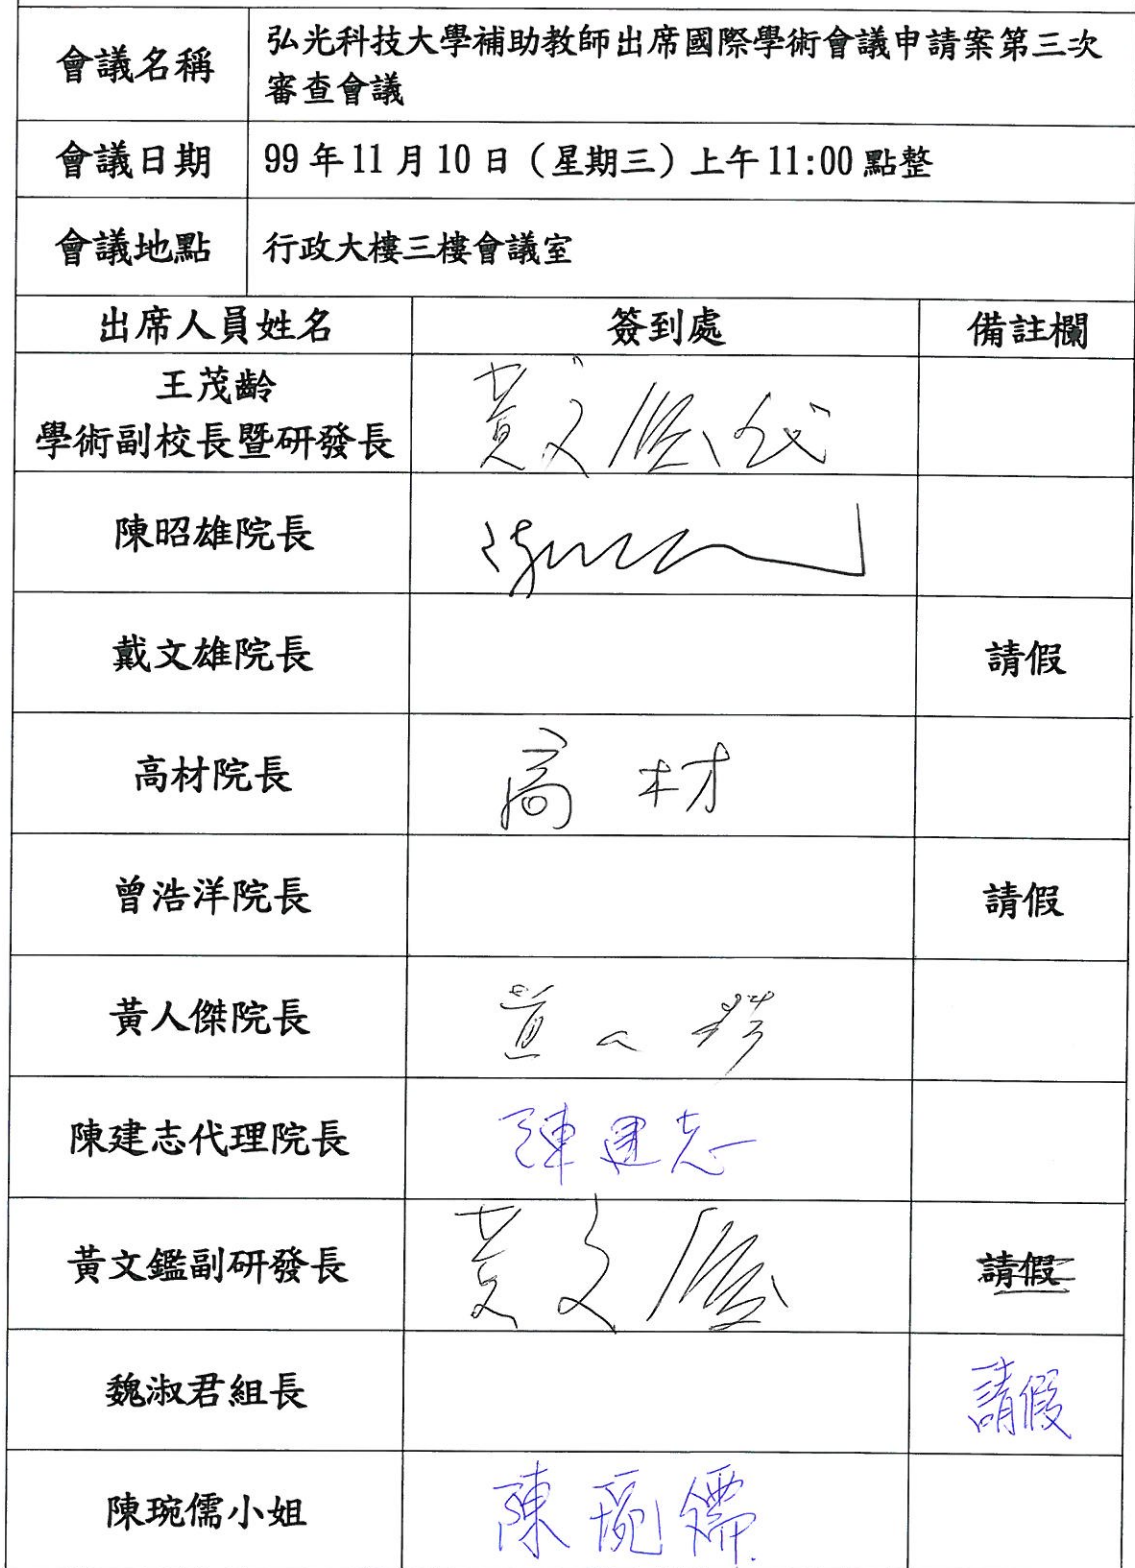 會議名稱
弘光科技大學補助教師出席國際學術會議申請案第三次
審查會議
會議日期
99年11月10日（星期三）上午11:00點整
會議地點
行政大樓三樓會議室
出席人員姓名 簽到處 備註欄
王茂齡
學術副校長暨研發長
黃文鑑代
陳昭雄院長
戴文雄院長 請假
高材院長 高材
曾浩洋院長 請假
黃人傑院長 黃人傑
陳建志代理院長 陳建志
黃文鑑副研發長 黃文鑑 請假
魏淑君組長 請假
陳琬儒小姐 陳琬儒